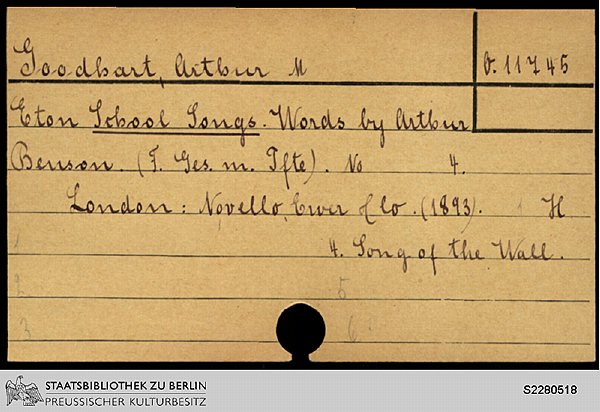 Goodhart, Arthur M
O. 11745
Eton School Songs. Words by Arthur
Benson. (F. Ges. m. Pfte). No 4.
London: Novello, Ewer & Co. (1893). H
1 4. Song of the Wall.
2 5
3 6
STAATSBIBLIOTHEK ZU BERLIN
PREUSSISCHER KULTURBESITZ
S2280518